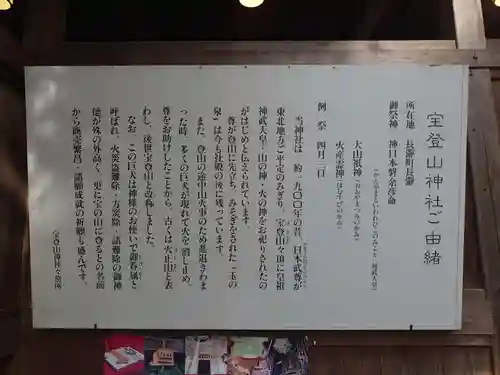 宝登山神社ご由緒
所在地　長瀞町長瀞
御祭神　神日本磐余彦命
（かんやまといわれひこのみこと＝神武天皇）
大山祇神（おおやまづみのかみ）
火産霊神（ほむすびのかみ）
例　祭　四月三日
当神社は、約一九〇〇年の昔、日本武尊が
東北地方ご平定のみぎり、宝登山々頂に皇祖
神武天皇・山の神・火の神をお祀りされたの
がはじめと伝えられています。
尊が登山に先立ち、みそぎをされた「玉の
泉」は今も社殿の後に残っています。
また、登山の途中山火事のため進退きわま
った時、多くの巨犬が現れて火を消し止め、
尊をお助けしたことから、古くは火止山と表
わし、後世宝登山と改称しました。
なお、この巨犬は神様のお使いで御眷属と
呼ばれ、火災盗難除・方災除、諸難除の御神
徳が殊の外高く、更に宝の山に登るとの名前
から商売繁昌・諸願成就の祈願も盛んです。
宝登山神社々務所